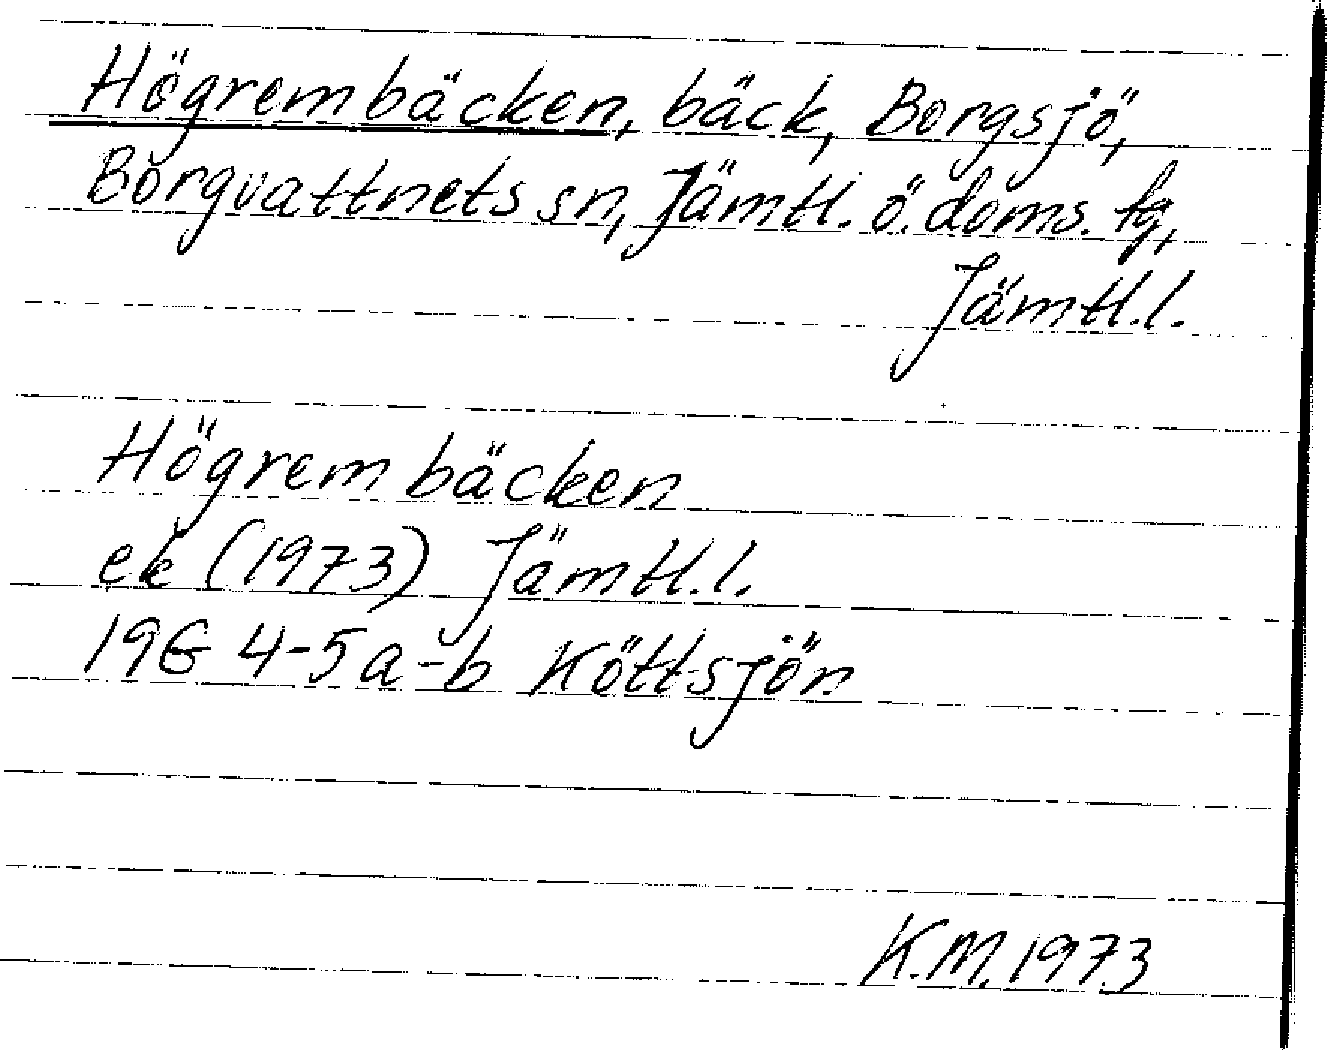 Högrembäcken, bäck, Borgsjö,
Borgvattnets sn, Jämtl. ö. doms. tg,
Jämtl. l.
Högrembäcken
ek (1973) Jämtl. l.
19G 4-5 a-b Köttsjön
K.M. 1973